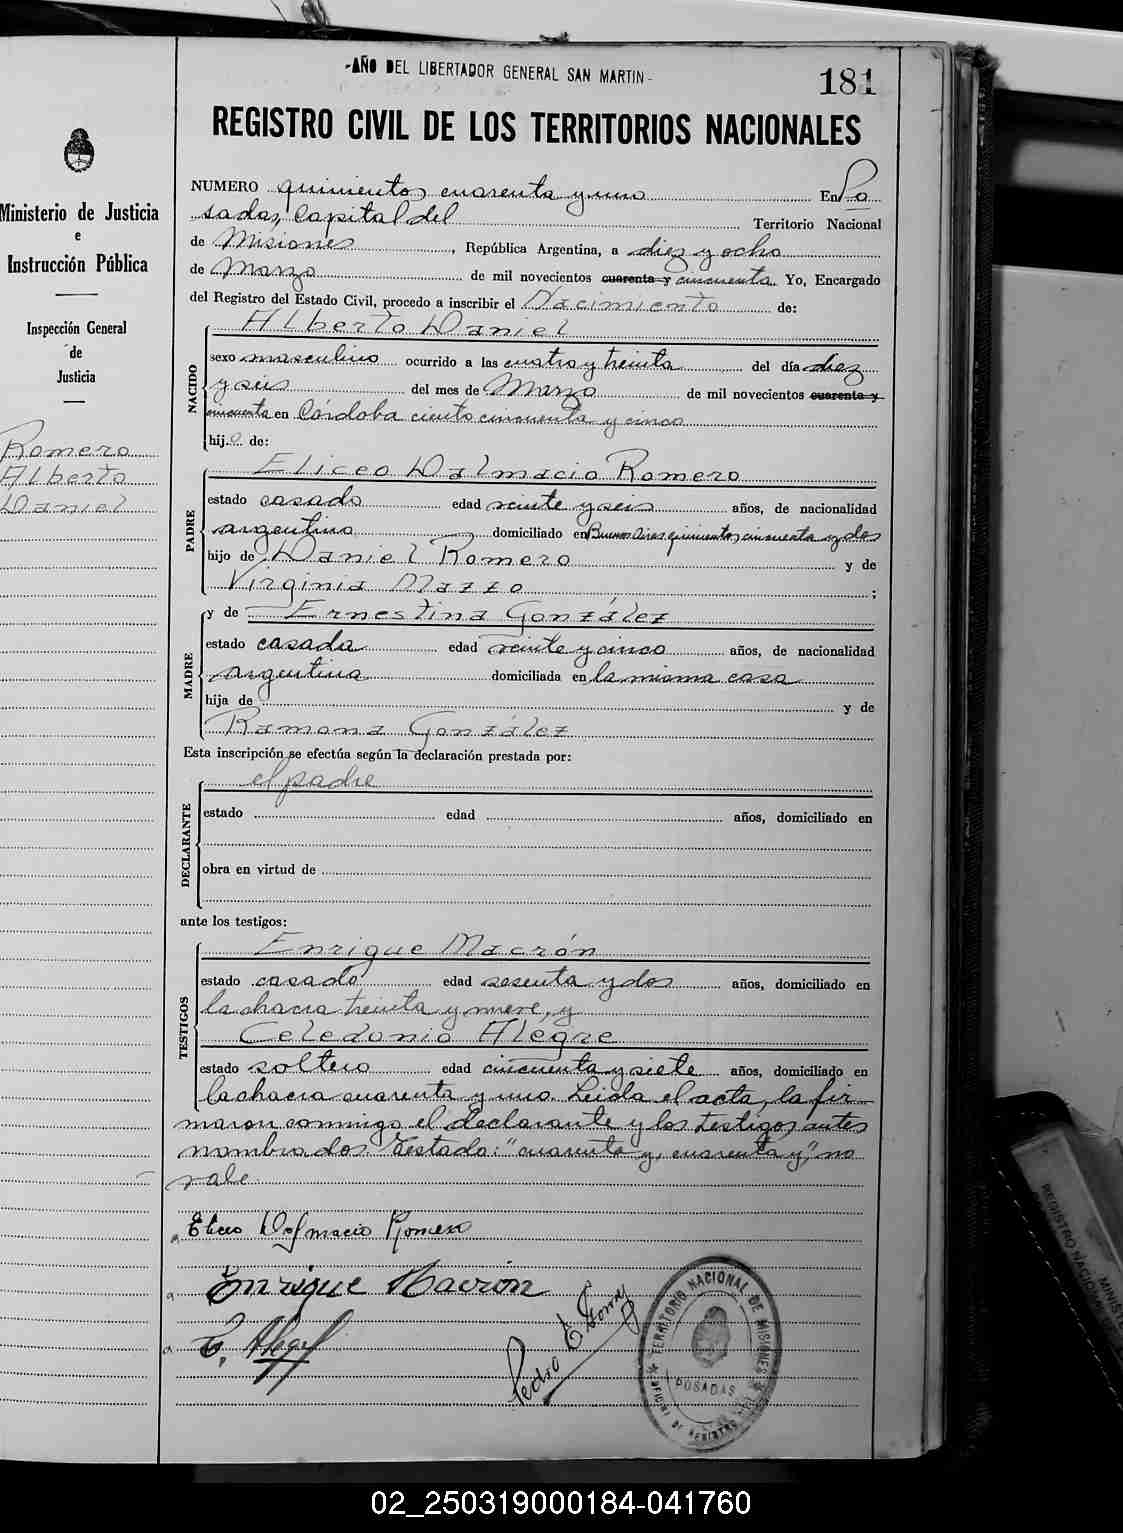 -AÑO DEL LIBERTADOR GENERAL SAN MARTIN-
181
REGISTRO CIVIL DE LOS TERRITORIOS NACIONALES
Ministerio de Justicia
e
Instrucción Pública
Inspección General
de
Justicia
Romero
Alberto
Daniel
NUMERO quinientos cuarenta y uno En Po
sadas, Capital del Territorio Nacional
de Misiones, República Argentina, a diez y ocho
de Marzo de mil novecientos cuarenta y cincuenta. Yo, Encargado
del Registro del Estado Civil, procedo a inscribir el Nacimiento de:
NACIDO
Alberto Daniel
sexo masculino ocurrido a las cuatro y treinta del día diez
y seis del mes de Marzo de mil novecientos cuarenta y
cincuenta en Córdoba ciento cincuenta y cinco
hijo de:
PADRE
Eliceo Dalmacio Romero
estado casado edad veinte y seis años, de nacionalidad
argentino domiciliado en Buenos Aires quinientos cincuenta y dos
hijo de Daniel Romero y de
Virginia Mazzo;
MADRE
y de Ernestina González
estado casada edad veinte y cinco años, de nacionalidad
argentina domiciliada en la misma casa
hija de y de
Ramona González
Esta inscripción se efectúa según la declaración prestada por:
DECLARANTE
el padre
estado edad años, domiciliado en
obra en virtud de
ante los testigos:
TESTIGOS
Enrique Macrón
estado casado edad sesenta y dos años, domiciliado en
la chacra treinta y nueve, y
Celedonio Alegre
estado soltero edad cincuenta y siete años, domiciliado en
la chacra cuarenta y uno. Leída el acta, la fir
maron conmigo el declarante y los testigos antes
nombrados. Testado: "cuarenta y, cuarenta y," no
vale
Eliceo Dalmacio Romero
Enrique Macrón
C. Alegre
Pedro E
TERRITORIO NACIONAL DE MISIONES
POSADAS
OFICINA DE REGISTRO
REGISTRO NACIONAL
MINISTE
02_250319000184-041760